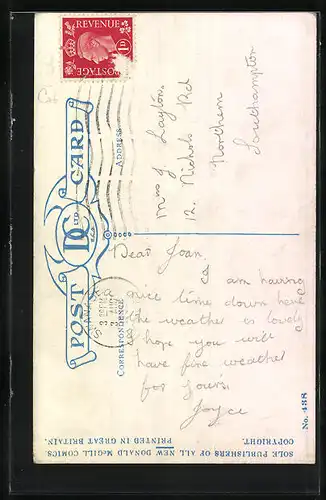 REVENUE
1D
POSTAGE
POST CARD
D C LTD.
CORRESPONDENCE
ADDRESS
Miss J. Layton.
12. Nichols Rd
Northern
Southampton
Dear Joan,
I am having
a nice time down here
the weather is lovely
I hope you will
have fine weather
for yours.
Joyce
SOLE PUBLISHERS OF ALL NEW DONALD McGILL COMICS.
COPYRIGHT. PRINTED IN GREAT BRITAIN.
No. 438